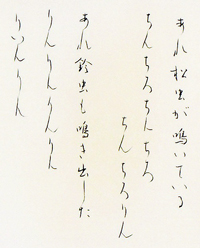 あれ松虫が鳴いている
ちんちろちんちろ
ちんちろりん
あれ鈴虫も鳴き出した
りんりんりんりん
りいんりん